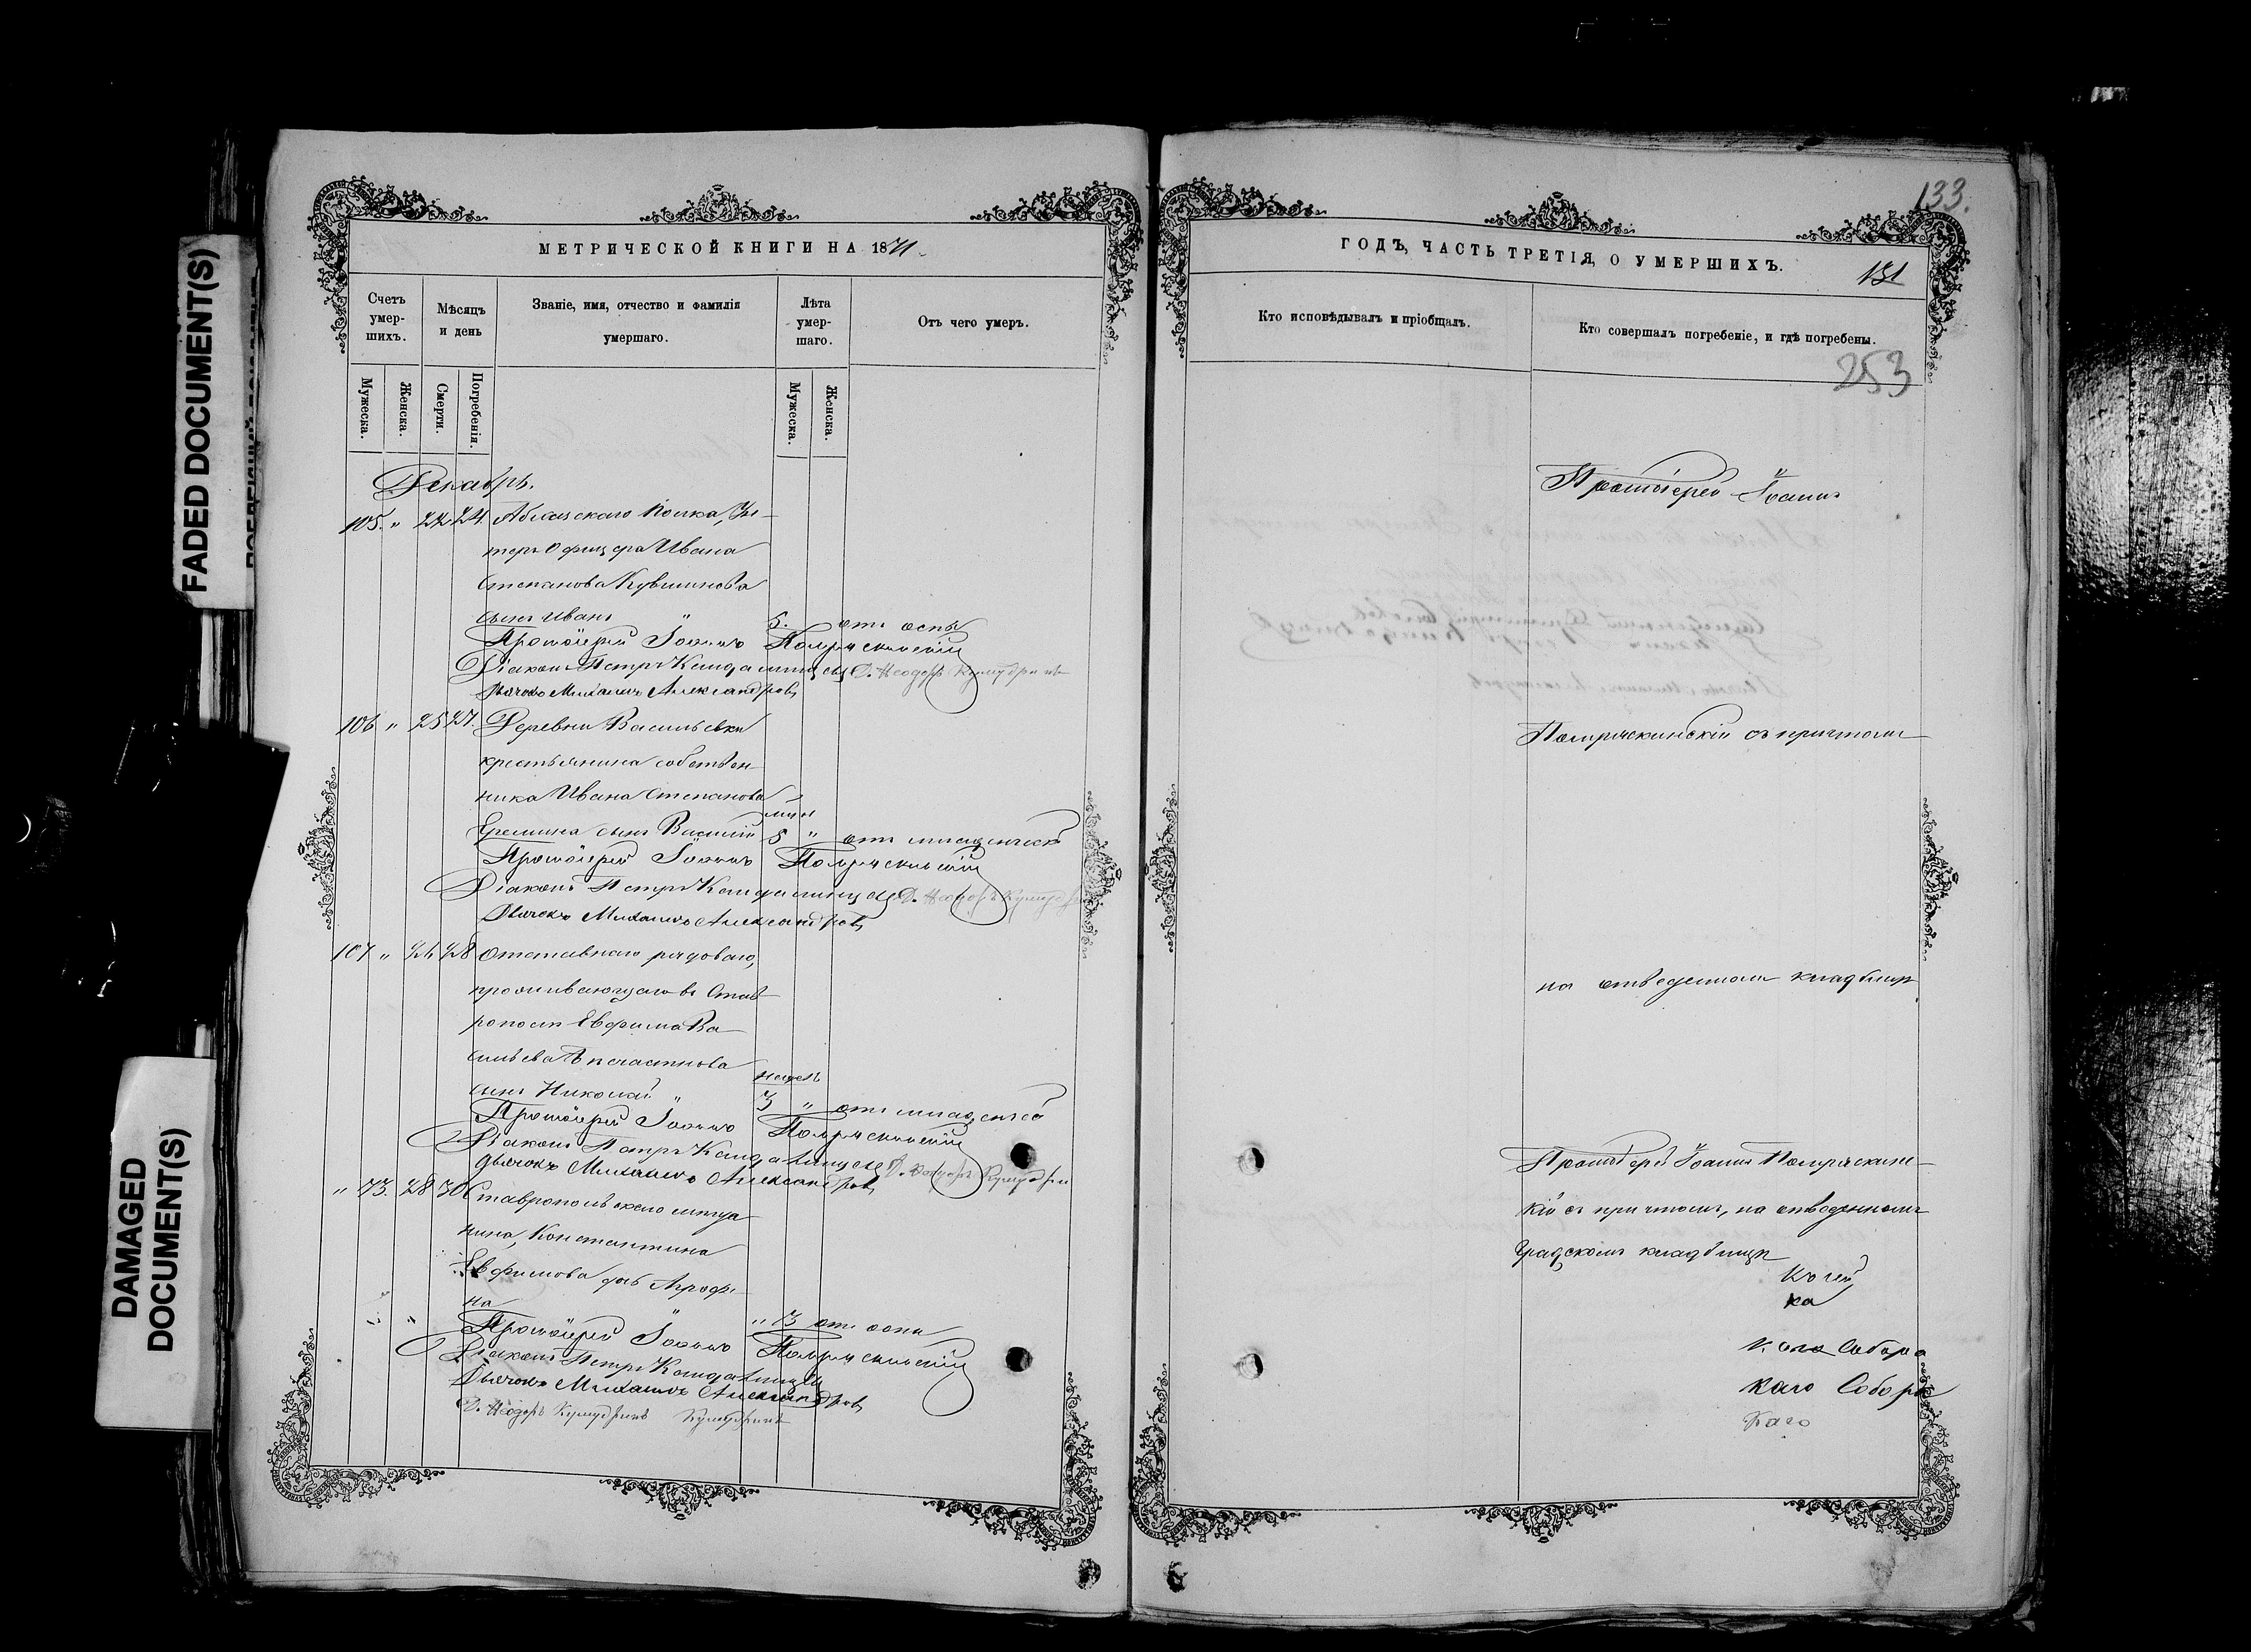 133.
МЕТРИЧЕСКОЙ КНИГИ НА 1871
Счетъ умер-шихъ.
Мѣсяцъ и день
Званіе, имя, отчество и фамилія умершаго.
Лѣта умер-шаго.
Отъ чего умеръ.
Мужеска.
Женска.
Смерти.
Погребенія.
Мужеска.
Женска.
Декабрь.
105. " 22 24 Абхазскаго полка, Ун-
теръ Офицера Ивана
Степанова Кувшинова
сынъ Иванъ " 5. отъ оспы
Протоіерей Іоаннъ Помряскинскій
Діаконъ Петръ Д. Ѳеодоръ
Дьячокъ Михаилъ Александровъ
106 " 25 27. Деревни Васильевки
крестьянина собствен-
ника Ивана Степанова
мѣс
Еремина сынъ Василій 8 " отъ младенческ
Протоіерей Іоаннъ Помряскинскій
Діаконъ Петръ Д. Ѳеодоръ
Дьячокъ Михаилъ Александровъ
107 " 26 28 Отставнаго рядоваго,
проживающаго въ Став-
рополѣ Евфима Ва-
сильева
недѣль
сынъ Николай " 3 " отъ младенчес
Протоіерей Іоаннъ Помряскинскій
Діаконъ Петръ Д. Ѳеодоръ
Дьячокъ Михаилъ Александровъ
" 73. 28 30 Ставропольскаго мѣща
нина, Константина
Евфимова дочь Агрофе-
на " 13 отъ оспы
Протоіерей Іоаннъ Помряскинскій
Діаконъ Петръ
Дьячокъ Михаилъ Александровъ
Д. Ѳеодоръ
ГОДЪ, ЧАСТЬ ТРЕТІЯ, О УМЕРШИХЪ.
131
Кто исповѣдывалъ и пріобщалъ.
Кто совершалъ погребеніе, и гдѣ погребены.
253
Протоіерей Іоаннъ
Помряскинскій съ причтомъ
на отведенномъ кладбищѣ
Протоіерей Іоаннъ Помряскинс-
кій съ причтомъ, на отведенномъ
Градскомъ кладбищѣ
ка
каго Собора
каго Собора
Каго
FADED DOCUMENT(S)
DAMAGED
DOCUMENT(S)